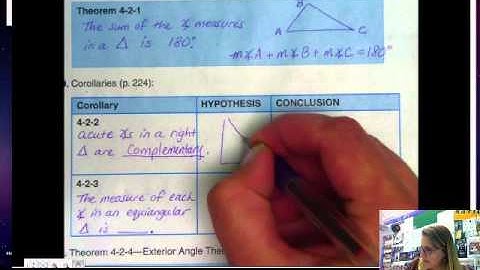 Theorem 4-2-1
The sum of the ∡ measures
in a Δ is 180°.
B
A
C
m∡A + m∡B + m∡C = 180°
Corollaries (p. 224):
Corollary HYPOTHESIS CONCLUSION
4-2-2
acute ∡s in a right
Δ are Complementary.
4-2-3
The measure of each
∡ in an equiangular
Δ is ____.
Theorem 4-2-4—Exterior Angle